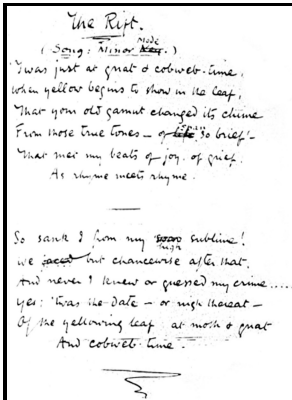 The Rift.
(Song: Minor Mode.)
'Twas just at gnat & cobweb-time,
When yellow begins to show in the leaf,
That your old gamut changed its chime
From those true tones – of span so brief! –
That met my beats of joy, of grief,
As rhyme meets rhyme.
So sank I from my high sublime!
We faced but chancewise after that,
And never I knew or guessed my crime.....
Yes; 'twas the date – or nigh thereat –
Of the yellowing leaf; at moth & gnat
And cobweb-time.